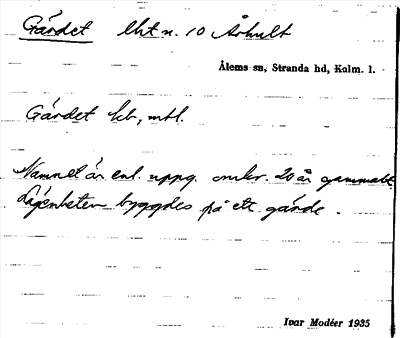 Gärdet lht n. 10 Århult
Ålems sn, Stranda hd, Kalm. l.
Gärdet kb, mtl.
Namnet är enl. uppg. omkr. 20 år gammalt
Lägenheten byggdes på ett gärde.
Ivar Modéer 1935